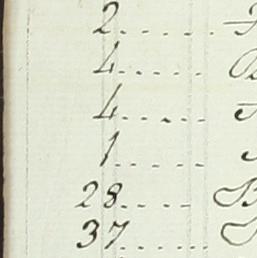 2......
4......
4......
1......
28..... B
37......